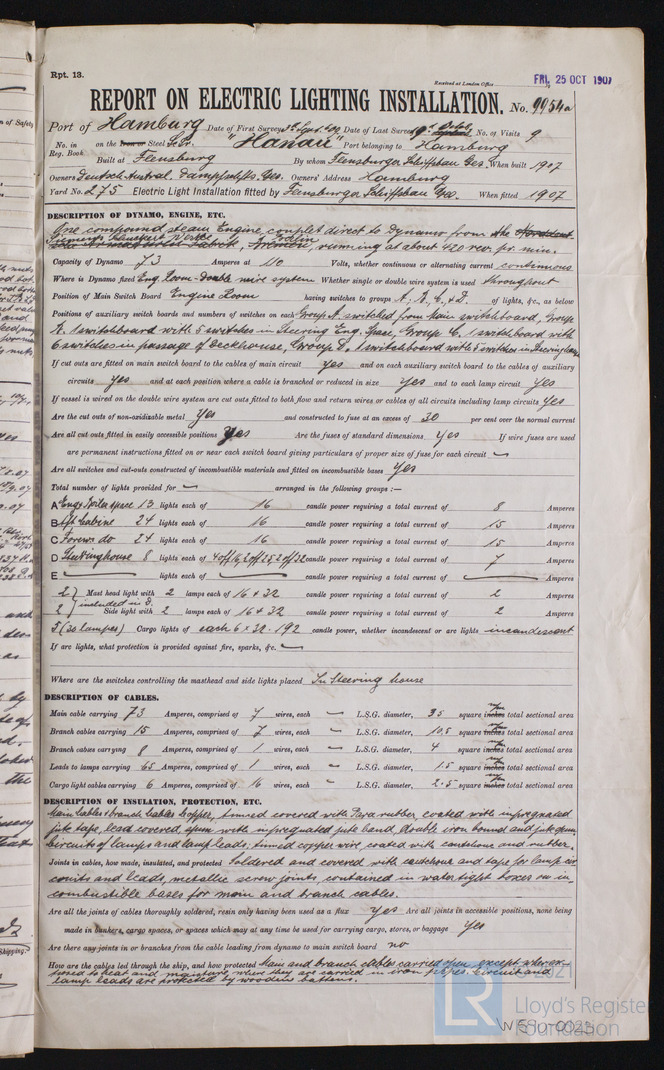 Rpt. 13.
Received at London Office
FRI. 25 OCT 1907
REPORT ON ELECTRIC LIGHTING INSTALLATION. No. 9954a
Port of Hamburg Date of First Survey Date of Last Survey No. of Visits 9
No. in Reg. Book on the Iron or Steel "Hanau" Port belonging to Hamburg
Built at Flensburg By whom Flensburger Schiffsbau Ges. When built 1907
Owners Deutsch-Austral. Dampfschffs. Ges. Owners' Address Hamburg
Yard No. 275 Electric Light Installation fitted by Flensburger Schiffsbau Ges. When fitted 1907
DESCRIPTION OF DYNAMO, ENGINE, ETC.
One compound steam Engine couplet direct to Dynamo from the
Bremen, running at about 420 rev. pr. min.
Capacity of Dynamo 73 Amperes at 110 Volts, whether continuous or alternating current continuous
Where is Dynamo fixed Eng. room - double wire system Whether single or double wire system is used throughout
Position of Main Switch Board Engine Room having switches to groups A, B, C, & D. of lights, &c., as below
Positions of auxiliary switch boards and numbers of switches on each Group A switched from main switchboard, Group
B. 1 switchboard with 5 switches in Steering Eng. Space, Group C. 1 switchboard with
6 switches in passage of deckhouse, Group D. 1 switchboard with 5 switches in Steeringhouse
If cut outs are fitted on main switch board to the cables of main circuit yes and on each auxiliary switch board to the cables of auxiliary
circuits yes and at each position where a cable is branched or reduced in size yes and to each lamp circuit yes
If vessel is wired on the double wire system are cut outs fitted to both flow and return wires or cables of all circuits including lamp circuits yes
Are the cut outs of non-oxidizable metal yes and constructed to fuse at an excess of 30 per cent over the normal current
Are all cut outs fitted in easily accessible positions yes Are the fuses of standard dimensions yes If wire fuses are used
are permanent instructions fitted on or near each switch board giving particulars of proper size of fuse for each circuit —
Are all switches and cut-outs constructed of incombustible materials and fitted on incombustible bases yes
Total number of lights provided for — arranged in the following groups :—
A Eng & Boiler space 13 lights each of 16 candle power requiring a total current of 8 Amperes
B Aft Cabins 24 lights each of 16 candle power requiring a total current of 15 Amperes
C Forw. do 24 lights each of 16 candle power requiring a total current of 15 Amperes
D Steeringhouse 8 lights each of 4 off 16, 2 off 25, 2 off 32 candle power requiring a total current of 7 Amperes
E — lights each of — candle power requiring a total current of — Amperes
2 Mast head light with 2 lamps each of 16 & 32 candle power requiring a total current of 2 Amperes
included in D.
2 Side light with 2 lamps each of 16 & 32 candle power requiring a total current of 2 Amperes
5 (30 lamps) Cargo lights of each 6 x 32 = 192 candle power, whether incandescent or arc lights incandescent
If arc lights, what protection is provided against fire, sparks, &c. —
Where are the switches controlling the masthead and side lights placed In Steering house
DESCRIPTION OF CABLES.
Main cable carrying 73 Amperes, comprised of 7 wires, each — L.S.G. diameter, 35 square inches total sectional area
Branch cables carrying 15 Amperes, comprised of 7 wires, each — L.S.G. diameter, 10.5 square inches total sectional area
Branch cables carrying 8 Amperes, comprised of 1 wires, each — L.S.G. diameter, 4 square inches total sectional area
Leads to lamps carrying 65 Amperes, comprised of 1 wires, each — L.S.G. diameter, 1.5 square inches total sectional area
Cargo light cables carrying 6 Amperes, comprised of 16 wires, each — L.S.G. diameter, 2.5 square inches total sectional area
DESCRIPTION OF INSULATION, PROTECTION, ETC.
Main Cables & branch Cables Copper, tinned covered with Para rubber, coated with impregnated
jute tape, lead covered, spun with impregnated jute band, double iron bound and jute spun
Circuits of lamps and lamp leads, tinned copper wire, coated with caoutchouc and rubber.
Joints in cables, how made, insulated, and protected Soldered and covered with caoutchouc and tape for lamp cir
cuits and leads, metallic screw joints, contained in watertight boxes on in-
combustible bases for main and branch cables.
Are all the joints of cables thoroughly soldered, resin only having been used as a flux yes Are all joints in accessible positions, none being
made in bunkers, cargo spaces, or spaces which may at any time be used for carrying cargo, stores, or baggage yes
Are there any joints in or branches from the cable leading from dynamo to main switch board no
How are the cables led through the ship, and how protected Main and branch cables carried open except where ex-
posed to heat and moisture where they are carried in iron pipes. Circuit and
lamp leads are protected by wooden battens.
© 2021
LR
Lloyd's Register
Foundation
W 510-0023